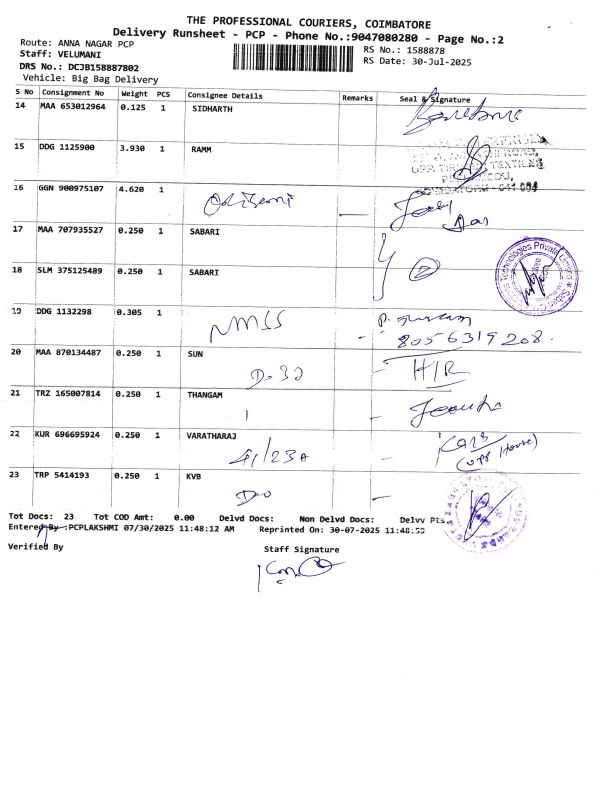 THE PROFESSIONAL COURIERS, COIMBATORE
Delivery Runsheet - PCP - Phone No.:9047080280 - Page No.:2
Route: ANNA NAGAR PCP
Staff: VELUMANI
RS No.: 1588878
DRS No.: DCJB158887802
RS Date: 30-Jul-2025
Vehicle: Big Bag Delivery
S No Consignment No Weight PCS Consignee Details Remarks Seal & Signature
14 MAA 653012964 0.125 1 SIDHARTH
15 DDG 1125900 3.930 1 RAMM
16 GGN 900975107 4.620 1
17 MAA 707935527 0.250 1 SABARI
18 SLM 375125489 0.250 1 SABARI
19 DDG 1132298 0.305 1 NMSS
8056319208.
20 MAA 870134487 0.250 1 SUN
D-32 H/R
21 TRZ 165007814 0.250 1 THANGAM
22 KUR 696695924 0.250 1 VARATHARAJ
41/23A (opp House)
23 TRP 5414193 0.250 1 KVB
D-0
Tot Docs: 23 Tot COD Amt: 0.00 Delvd Docs: Non Delvd Docs: Delvv Pts
Entered By :PCPLAKSHMI 07/30/2025 11:48:12 AM Reprinted On: 30-07-2025 11:48:
Verified By
Staff Signature